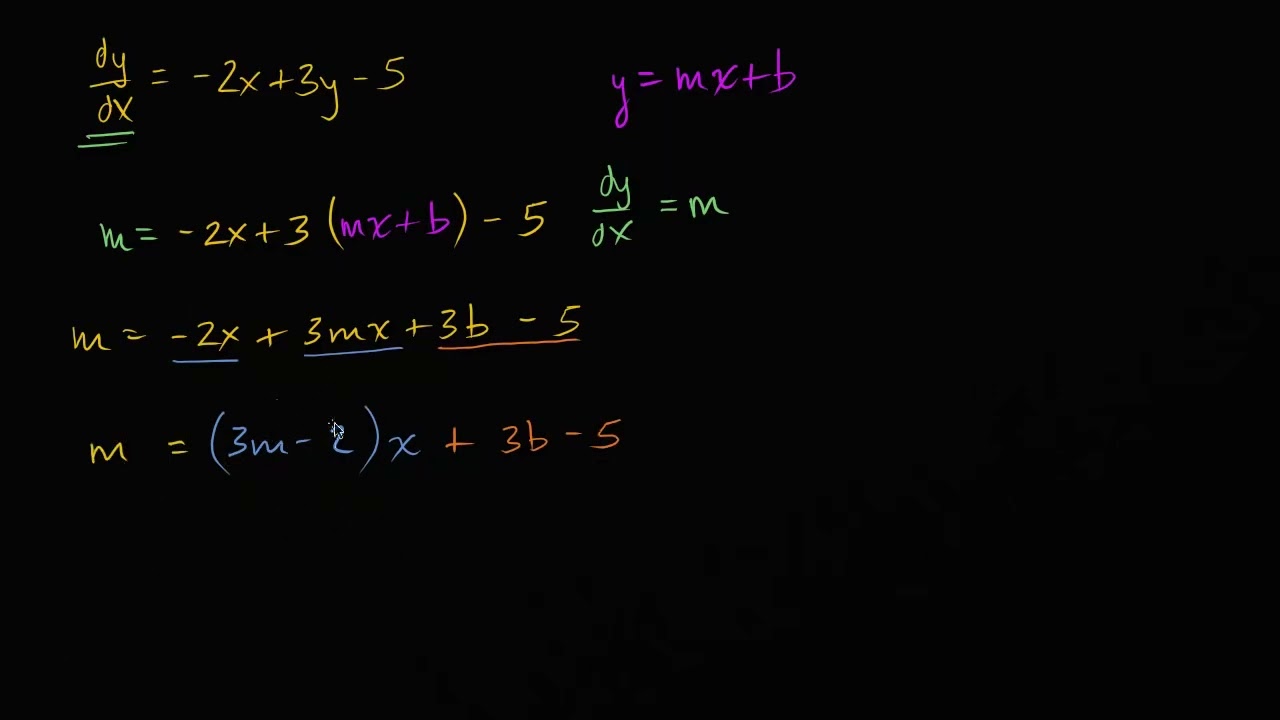 dy/dx = -2x + 3y - 5
y = mx + b
m = -2x + 3 (mx + b) - 5
dy/dx = m
m = -2x + 3mx + 3b - 5
m = (3m - 2)x + 3b - 5